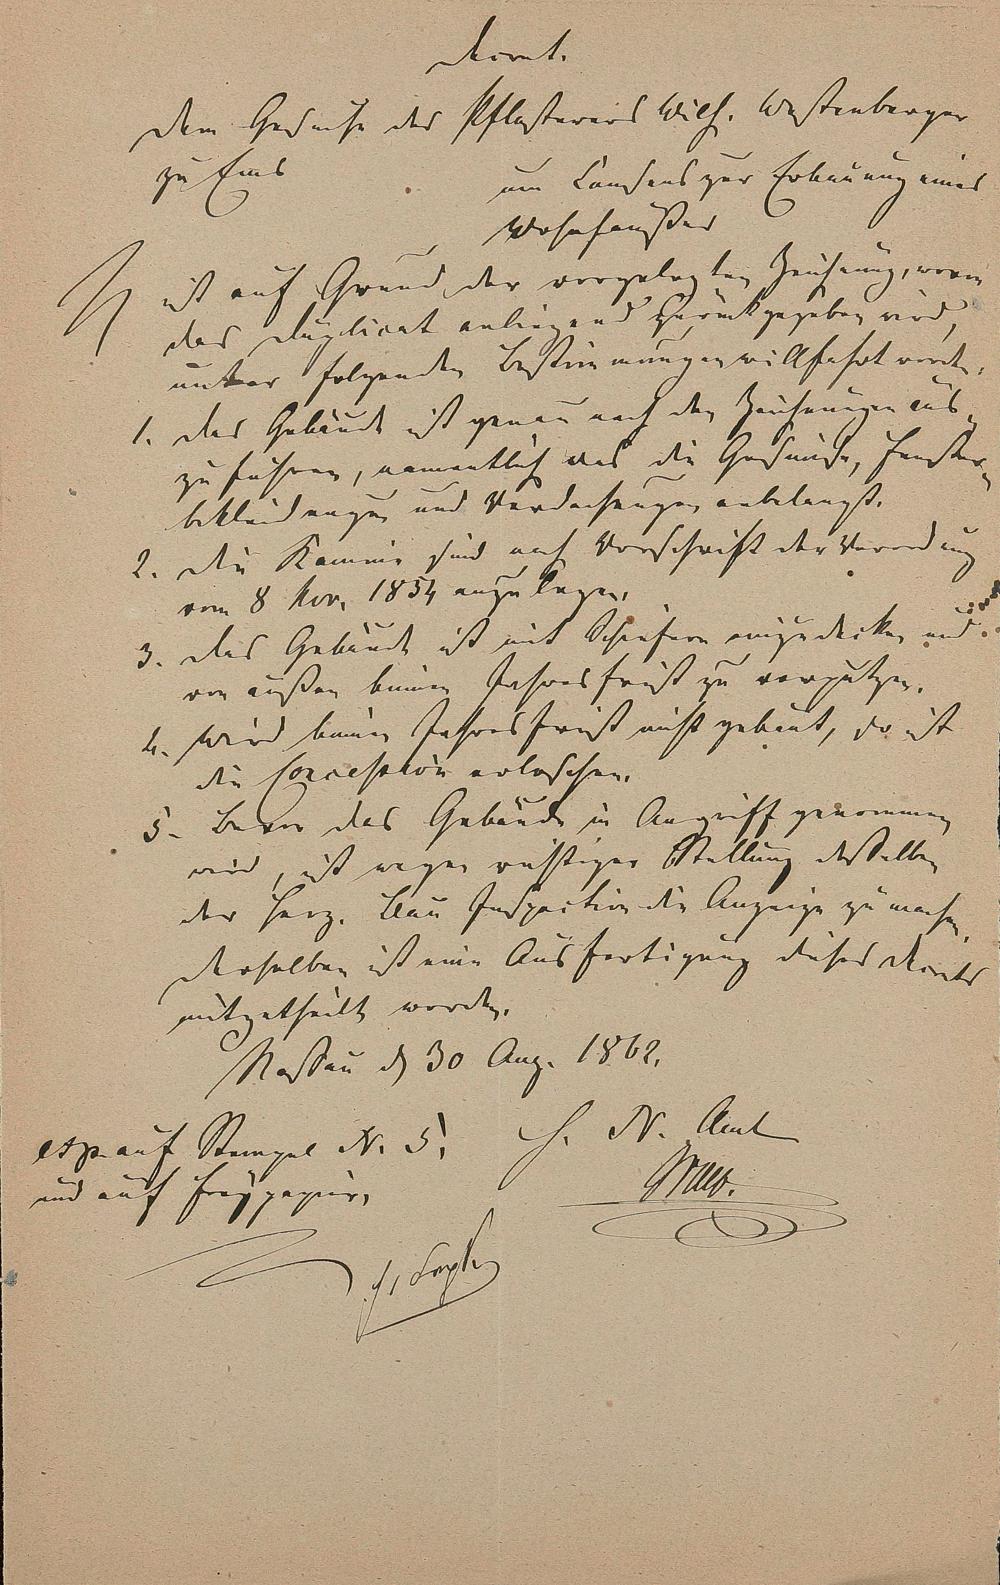 Decret.
Dem Gesuche des Pflasterers Wilh. Westenberger
zu Ems
um Consens zur Erbauung eines
Wohnhauses
ist auf Grund der vorgelegten Zeichnung, wovon
das Duplicat anliegend zurückgegeben wird,
unter folgenden Bestimmungen willfahrt worden.
1. Das Gebäude ist genau nach den Zeichnungen aus-
zuführen, namentlich was die Gesimse, Fenster-
bekleidungen und Verdachungen anbelangt.
2. Die Kamine sind nach Vorschrift der Verordnung
vom 8 Nov. 1854 anzulegen.
3. Das Gebäude ist mit Schiefern einzudecken und
von außen binnen Jahresfrist zu verputzen.
4. Wird binnen Jahresfrist nicht gebaut, so ist
die Concession erloschen.
5. Bevor das Gebäude in Angriff genommen
wird, ist wegen richtiger Stellung desselben
der Herz. Bau Inspection die Anzeige zu machen.
Derselben ist eine Ausfertigung dieses Decrets
mitgetheilt worden.
Nassau d 30 Aug. 1862.
H. N. Amt
exp. auf Stempel N. 5.
und auf Freypapier.